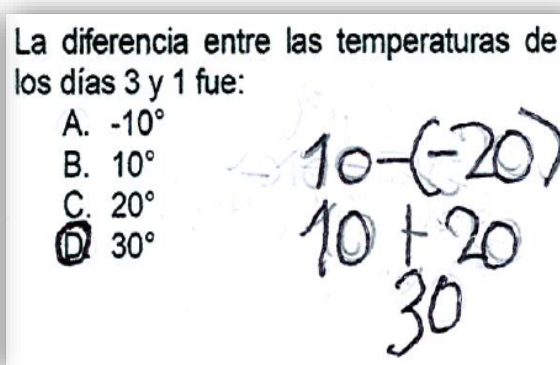 La diferencia entre las temperaturas de
los días 3 y 1 fue:
A. -10°
B. 10°
C. 20°
D. 30°
10-(-20)
10 + 20
30